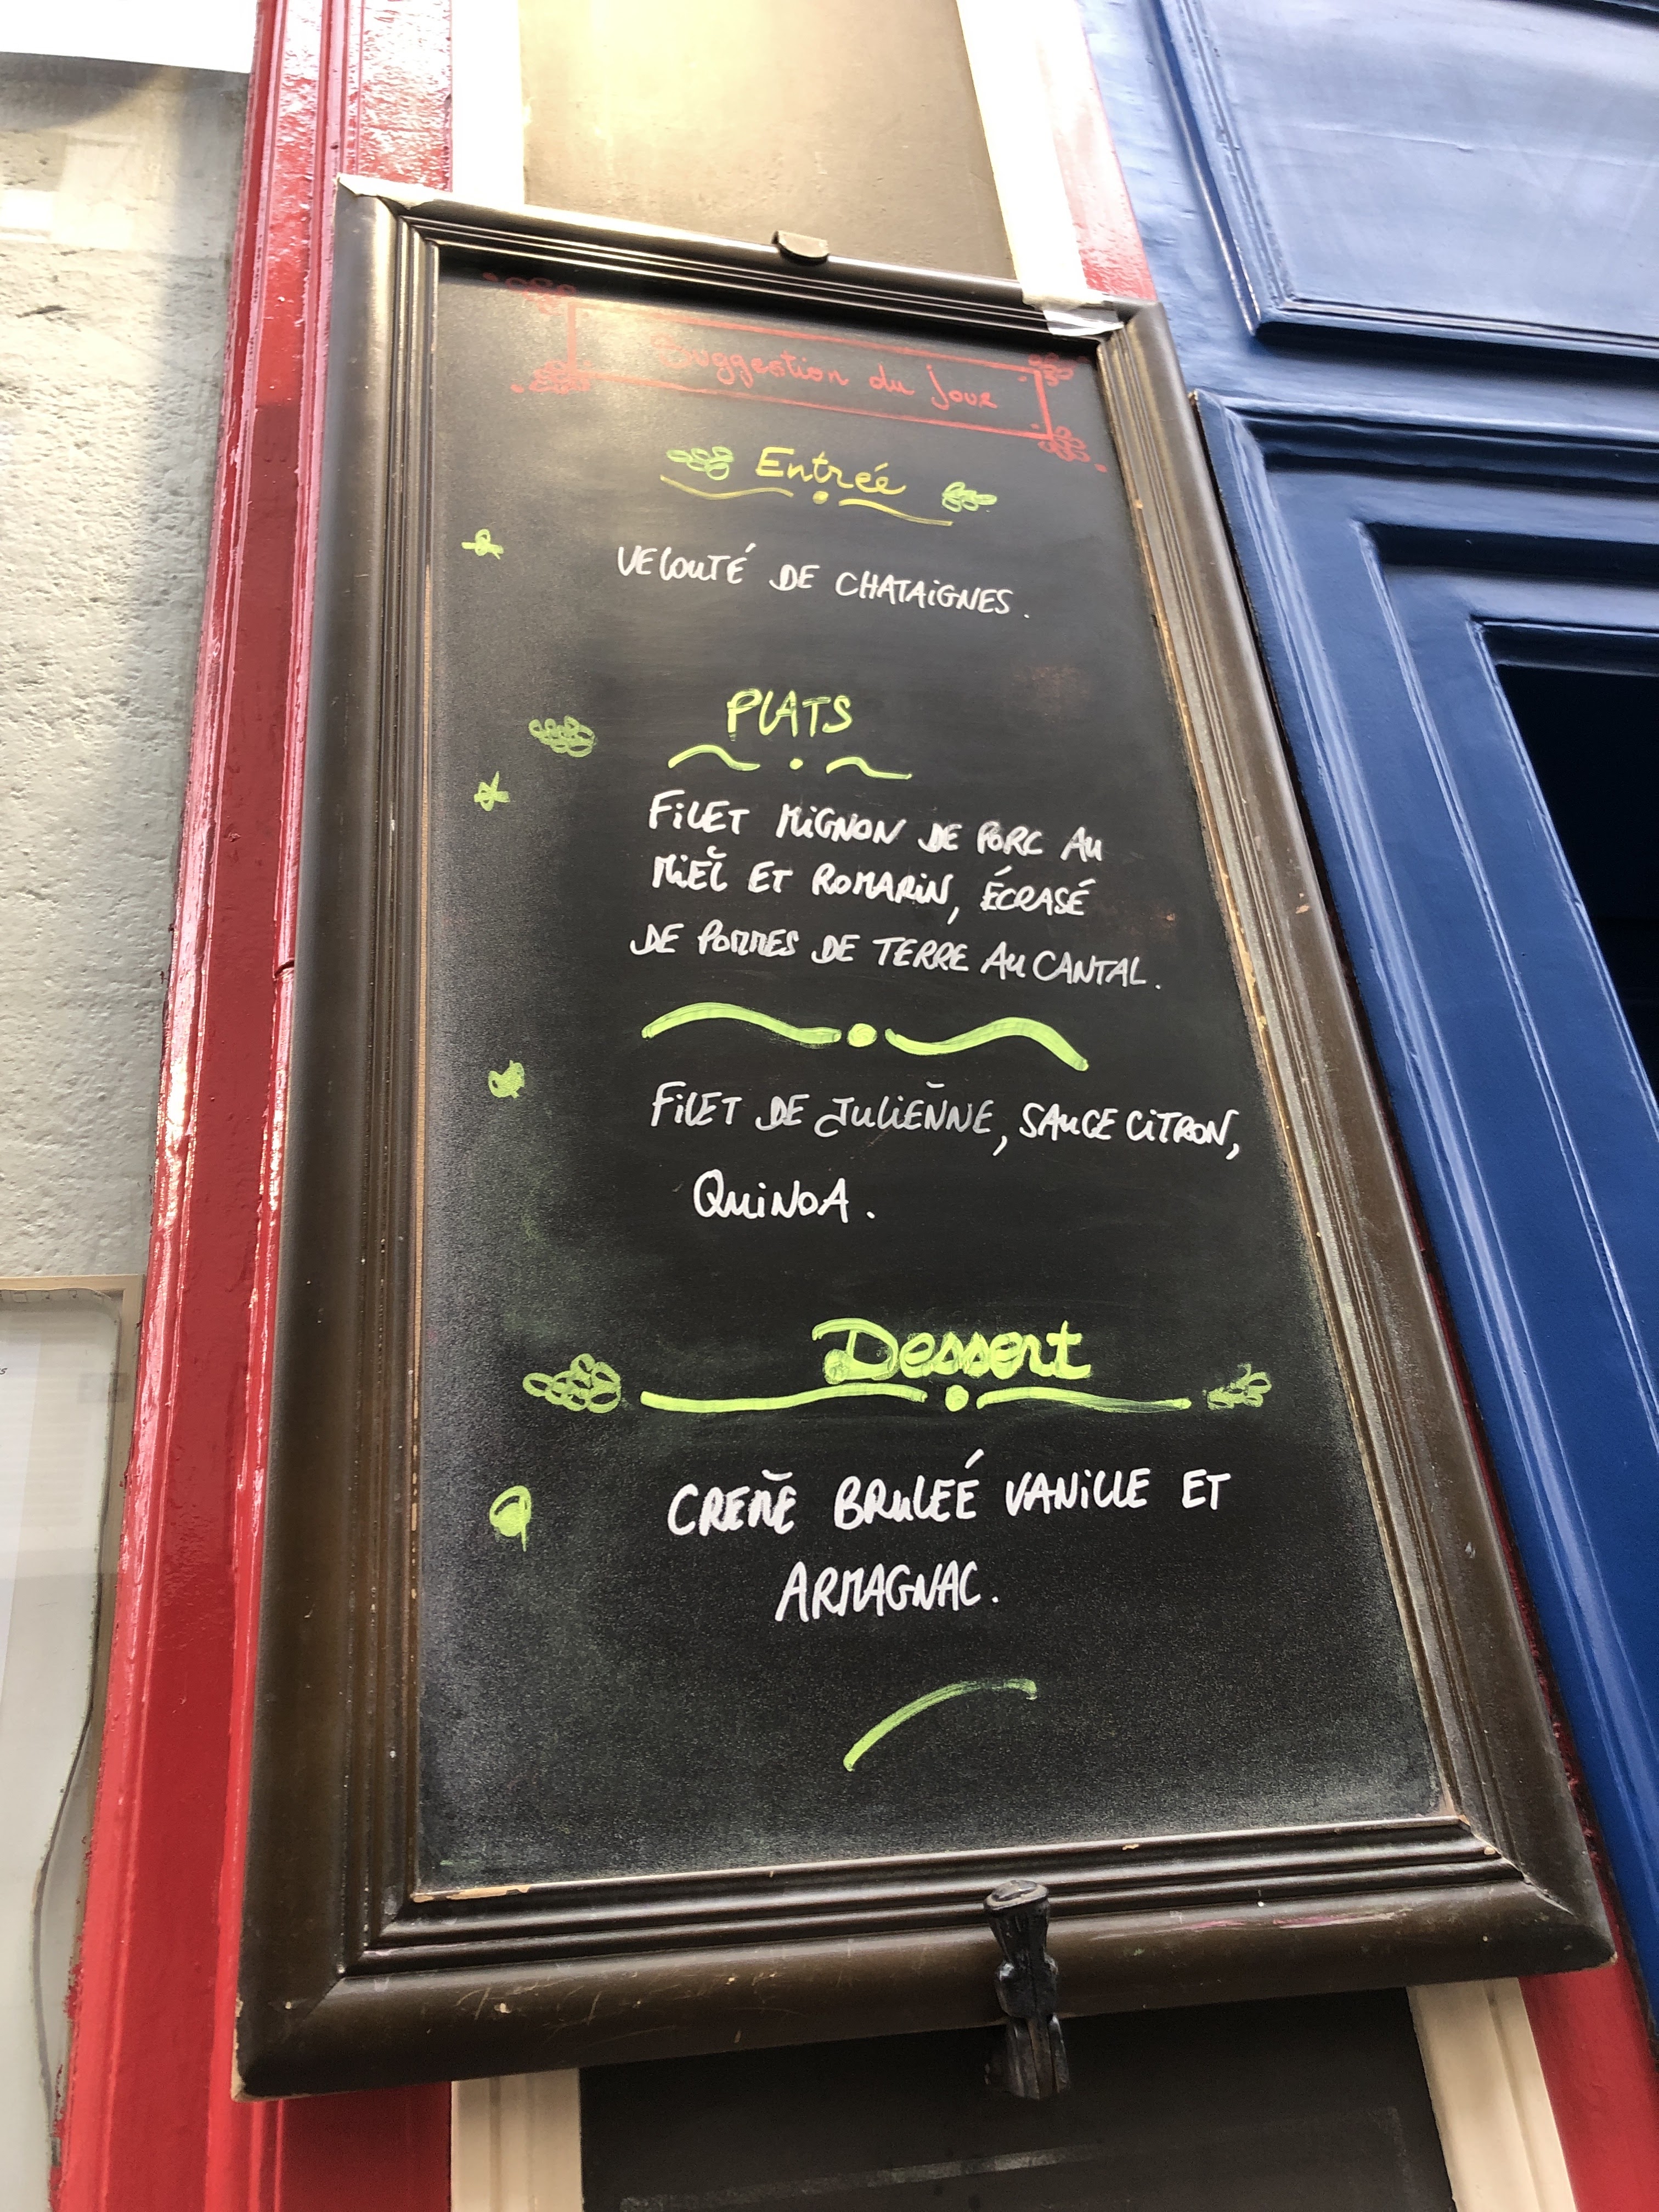 Suggestion du jour
Entrée
VELOUTÉ DE CHATAIGNES.
PLATS
FILET MIGNON DE PORC AU
MIEL ET ROMARIN, ÉCRASÉ
DE POMMES DE TERRE AU CANTAL.
FILET DE JULIENNE, SAUCE CITRON,
QUINOA.
Dessert
CREME BRULEÉ VANILLE ET
ARMAGNAC.